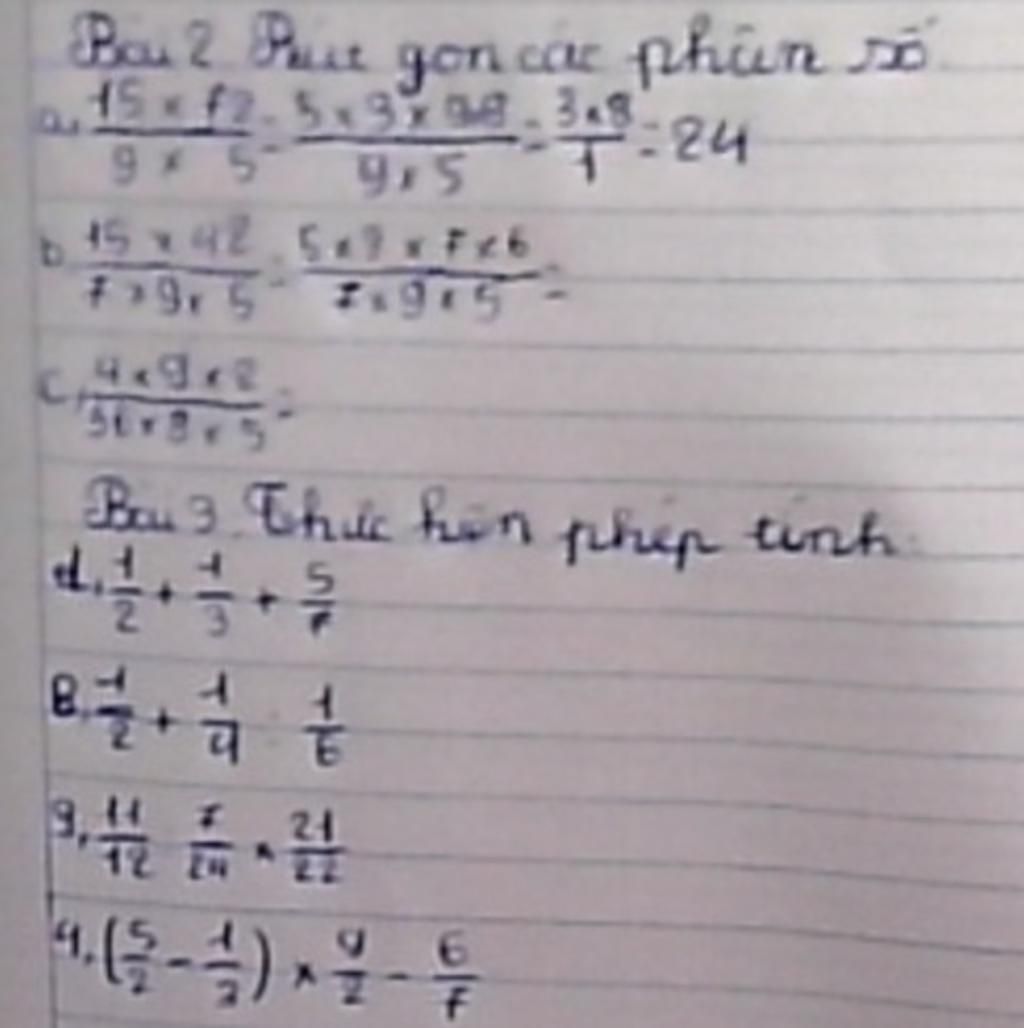 Bài 2 Rút gọn các phân số
a, 15 × 72 / 9 × 5 = 5 × 3 × 9 × 8 / 9 × 5 = 3 × 8 / 1 = 24
b, 15 × 42 / 7 × 9 × 5 = 5 × 3 × 7 × 6 / 7 × 9 × 5 =
c, 4 × 9 × 2 / × 8 × 5 =
Bài 3. Thực hiện phép tính
1, 1/2 + 1/3 + 5/7
2, 1/2 + 1/4 1/6
3, 11/12 7/24 × 21/22
4, (5/2 - 1/3) × 9/2 - 6/7